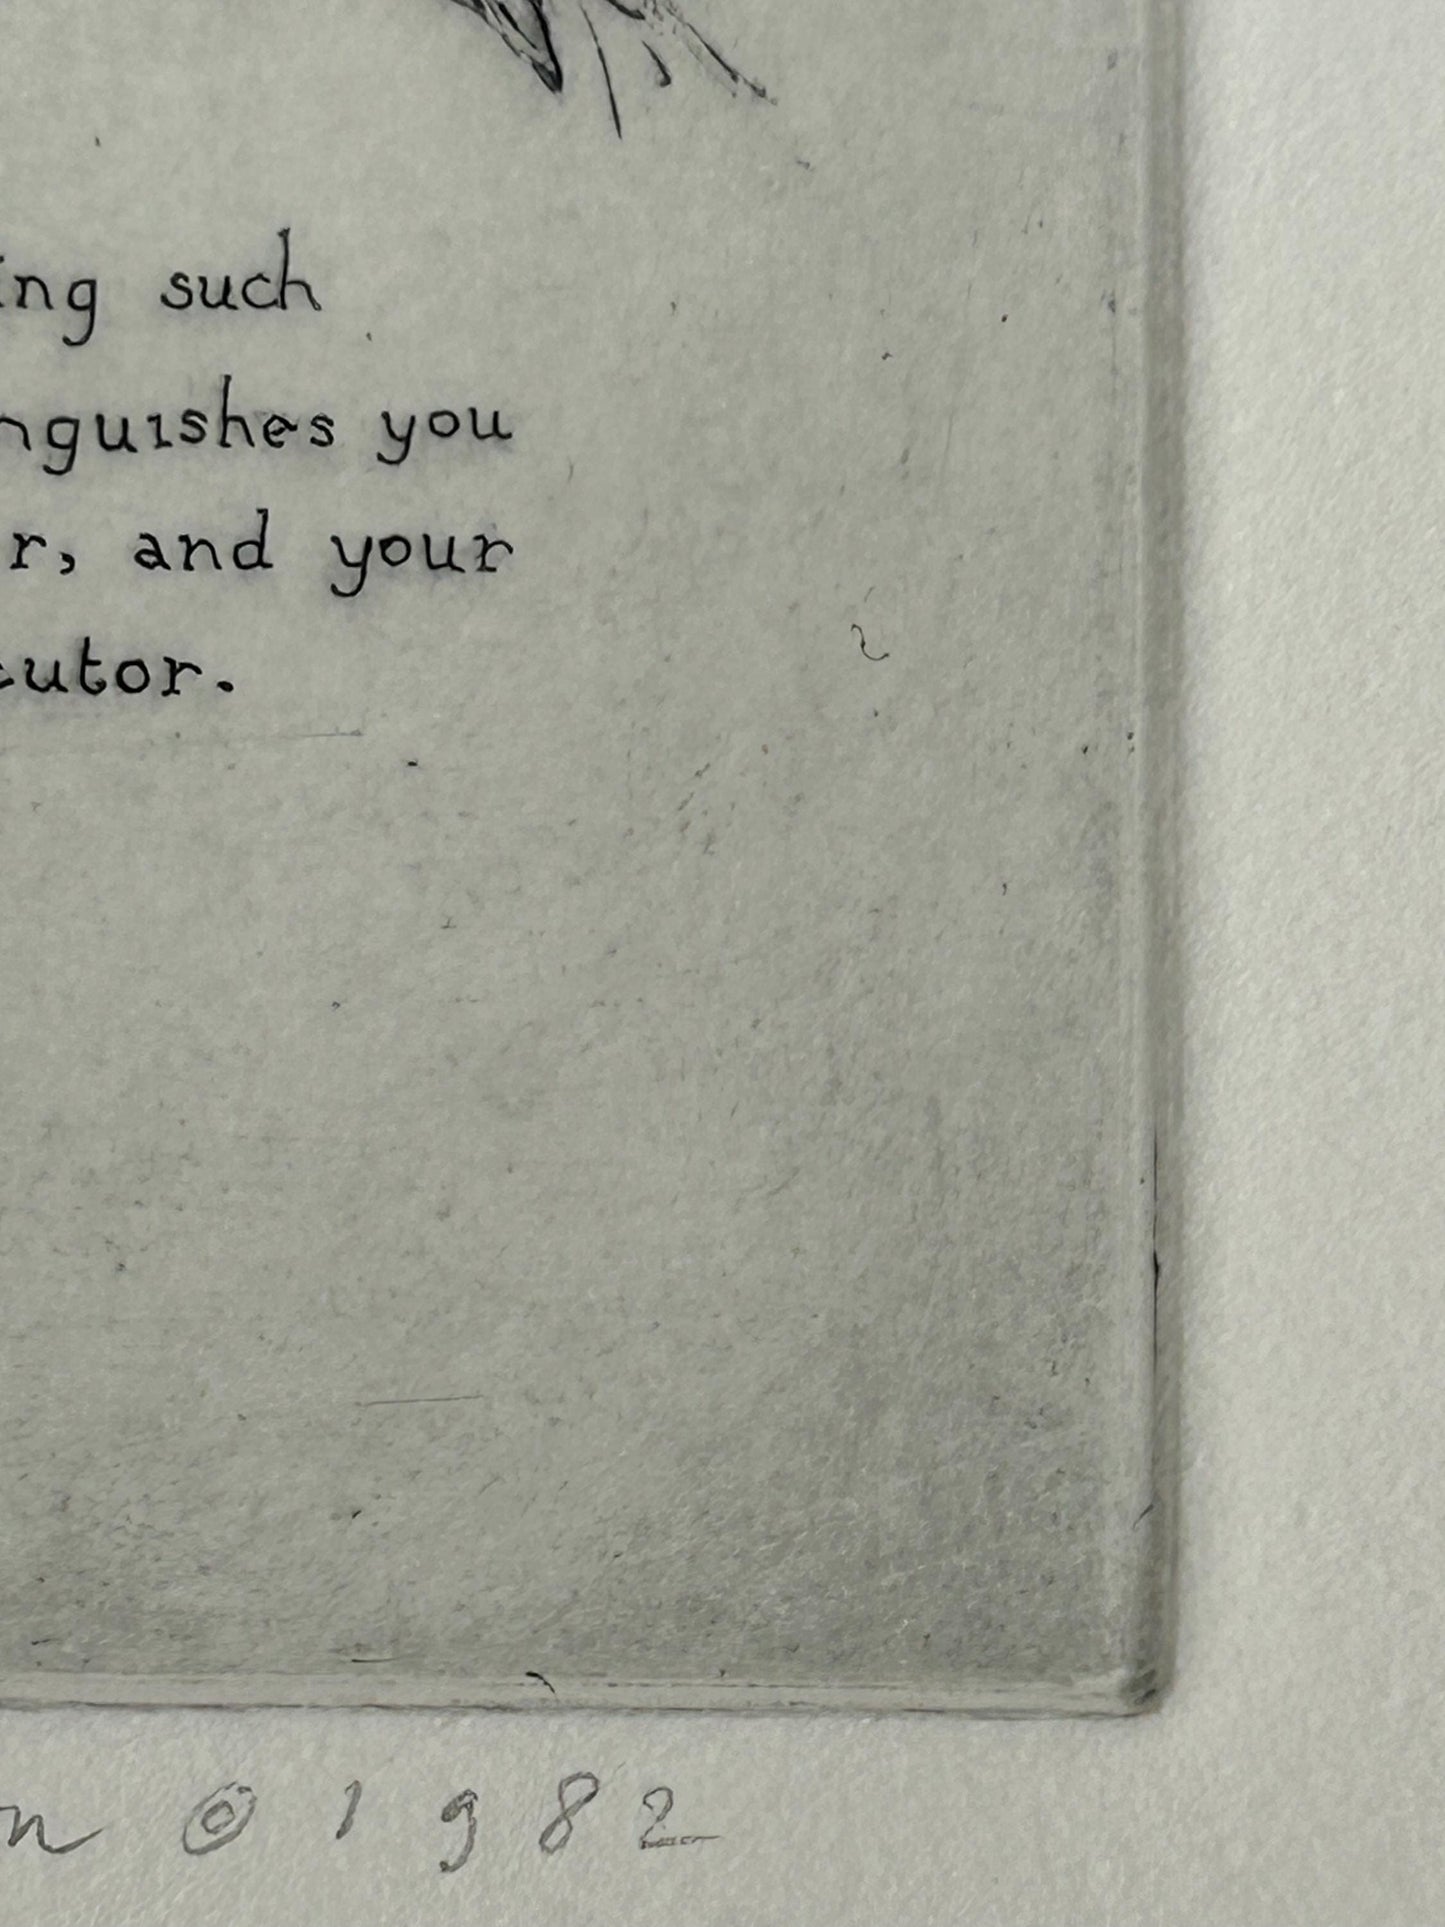 ing such
nguishes you
r, and your
cutor.
n © 1982